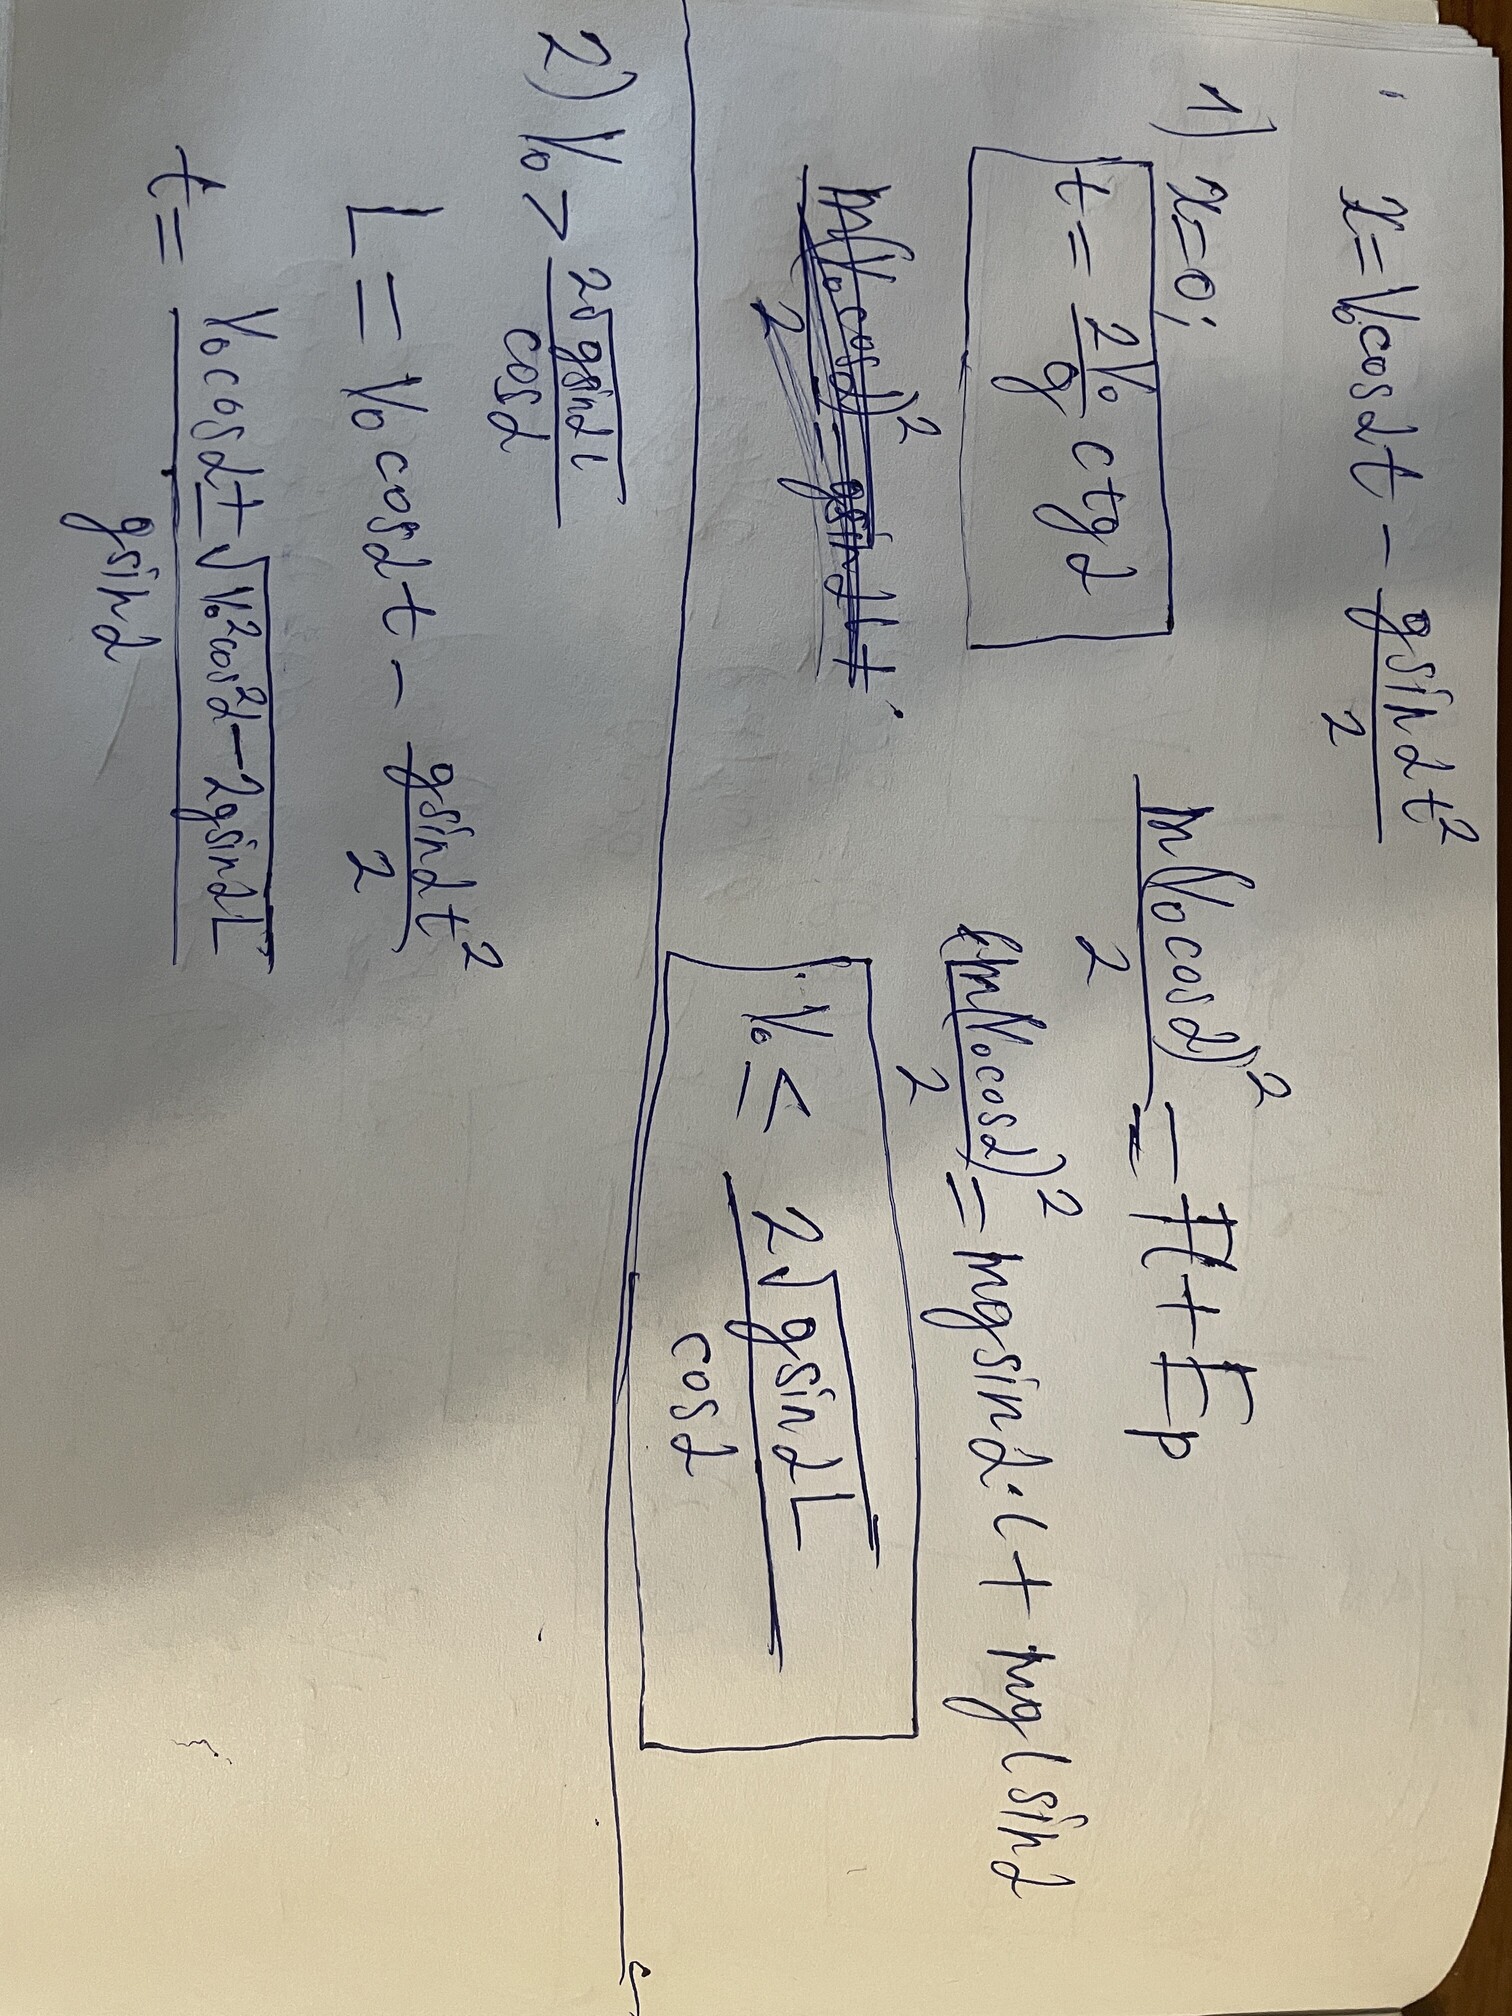 x = V₀cosαt − gsinαt²/2
1) x=0;
t = 2V₀/g ctgα
m(V₀cosα)²/2 = A + Eₚ
m(V₀cosα)²/2 = mgsinα·l + mglsinα
V₀ ≤ 2√(gsinαL)/cosα
2) V₀ > 2√(gsinαL)/cosα
L = V₀cosαt − gsinαt²/2
t = (V₀cosα ± √(V₀²cos²α − 2gsinαL))/gsinα